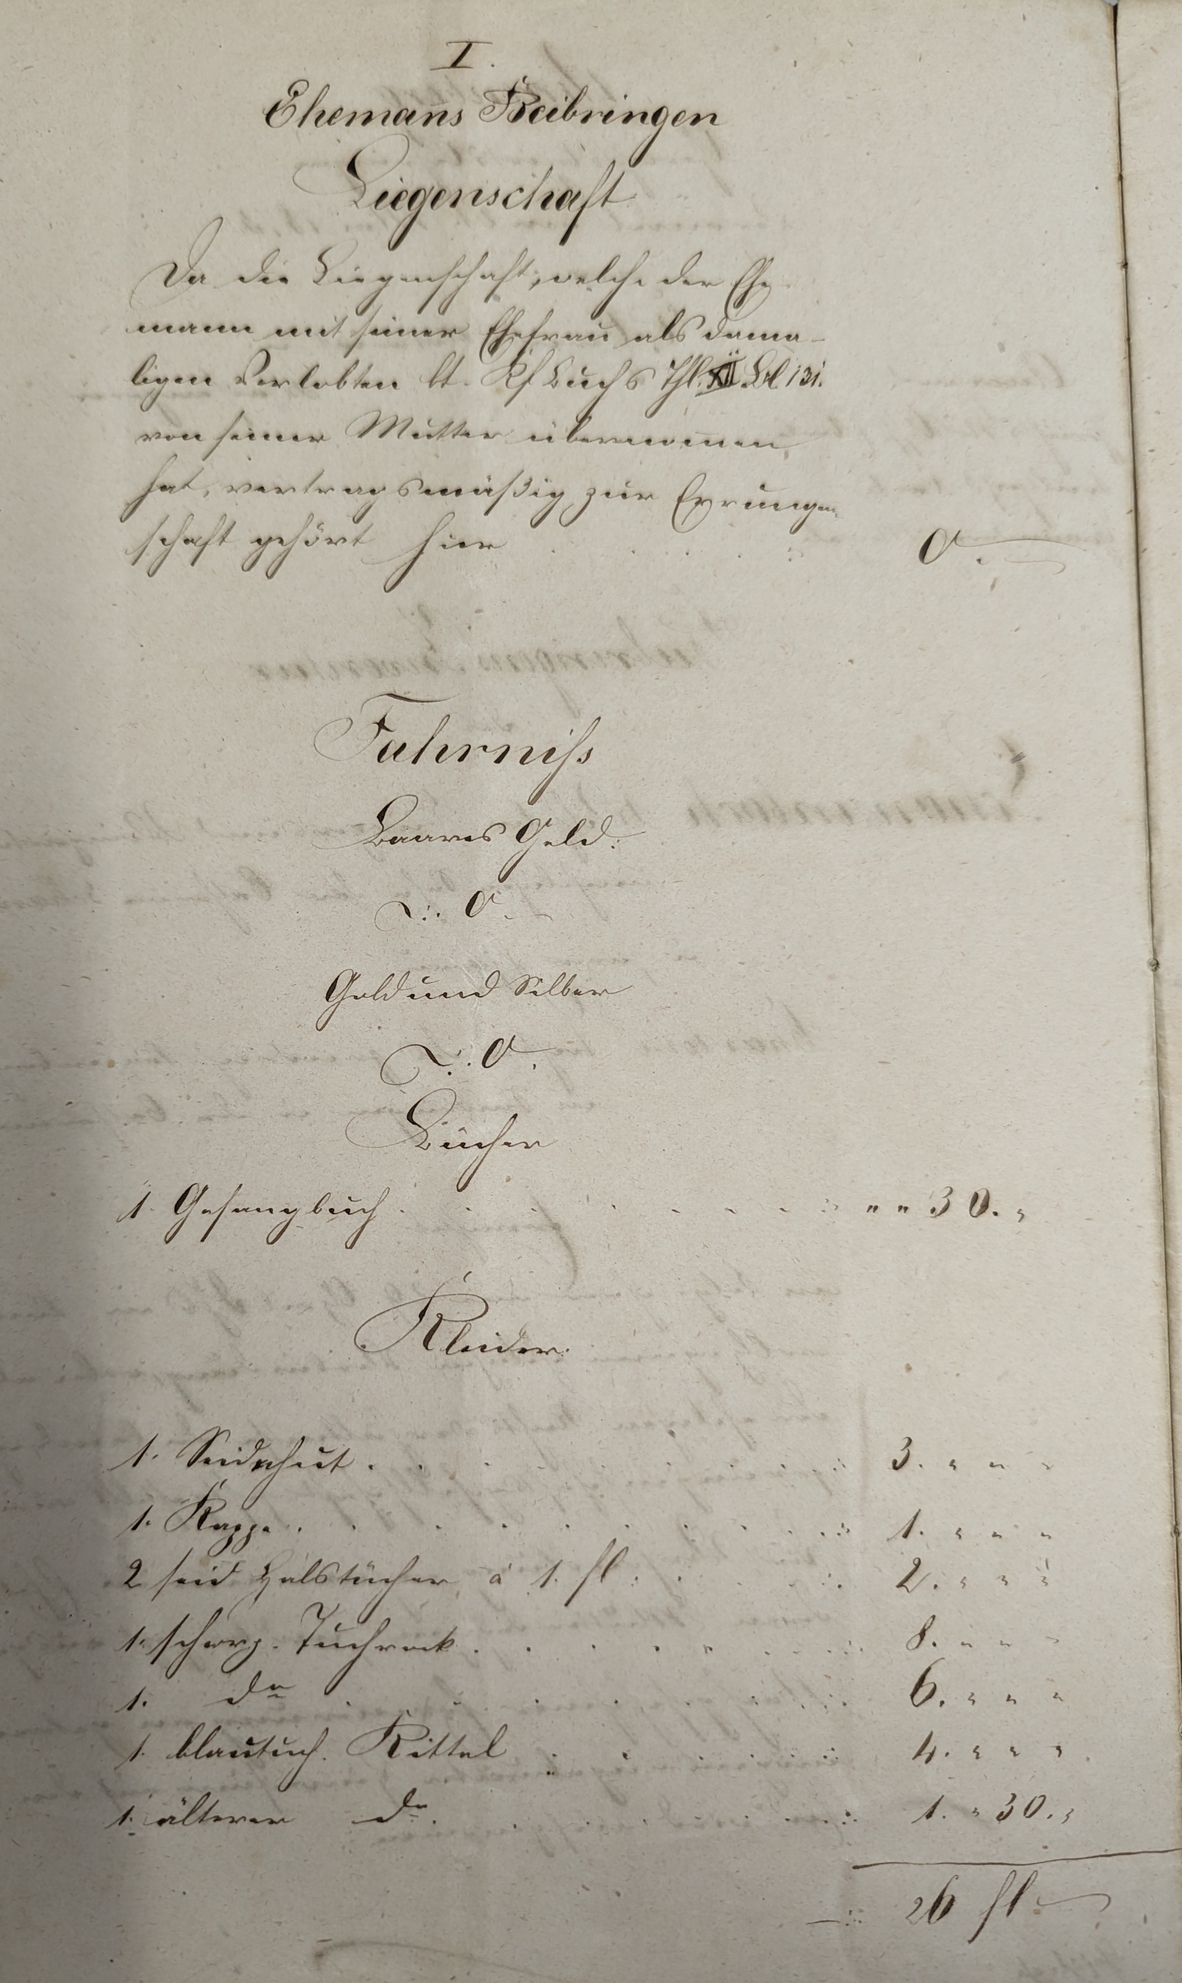 I.
Ehemans Beibringen
Liegenschaft
Da die Liegenschaft, welche der Ehe-
mann mit seiner Ehefrau als dama-
ligen Verlobten lt. Kf Buchs Thl. XII Bl 131.
von seiner Mutter übernomen
hat, vertragsmäßig zur Errungen
schaft gehört hier . . . . . : 0.
Fahrniss
Baares Geld:
–:. 0. –
Gold und Silber
–:. 0.
Bücher
1. Gesangbuch . . . . . . . . . " " 30. "
Kleider.
1. Seidehut . . . . . . . . . 3. " " "
1. Kappe . . . . . . . . . 1. " " "
2 seid Halstücher à 1. fl : . . . . 2. " " "
1. schwrz. Tuchrock . . . . . . . . 8. " " "
1. do . . . . . . . . 6. " " "
1. blautuch. Kittel . . . . . . . 4. " " "
1. älterer do . . . . . . . . 1. " 30. "
–:. 26 fl –